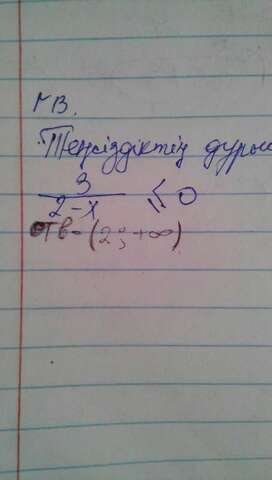 ГВ.
Теңсіздіктің дұрыс
3
2-x ≤ 0
отв- (2; +∞)